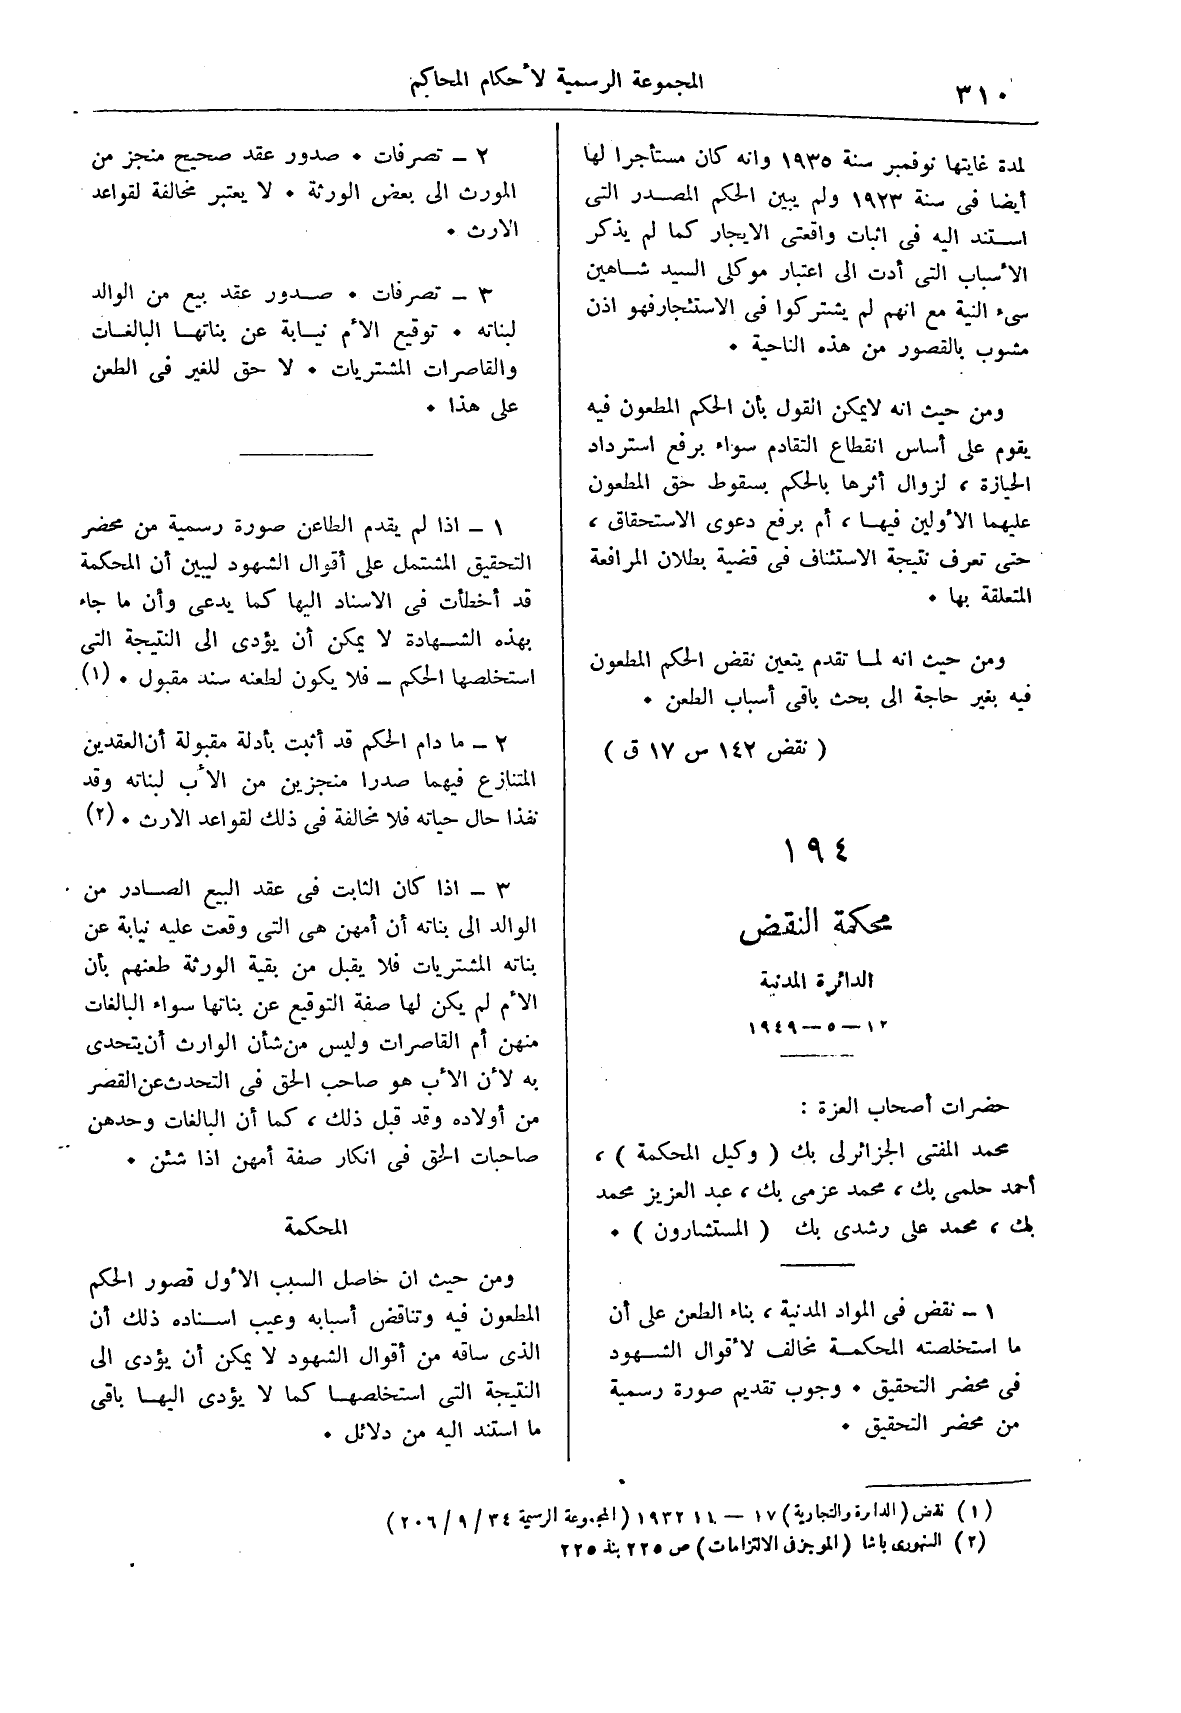 ٣١٠
المجموعة الرسمية لأحكام المحاكم
لمدة غايتها نوفمبر سنة ١٩٣٥ وانه كان مستأجرا لها
أيضا فى سنة ١٩٢٣ ولم يبين الحكم المصدر التى
استند اليه فى اثبات واقعتى الايجار كما لم يذكر
الأسباب التى أدت الى اعتبار موكلى السيد شاهين
سىء النية مع انهم لم يشتركوا فى الاستئجار فهو اذن
مشوب بالقصور من هذه الناحية .
ومن حيث انه لايمكن القول بأن الحكم المطعون فيه
يقوم على أساس انقطاع التقادم سواء برفع استرداد
الحيازة ، لزوال أثرها بالحكم بسقوط حق المطعون
عليهما الأولين فيها ، أم برفع دعوى الاستحقاق ،
حتى تعرف نتيجة الاستئناف فى قضية بطلان المرافعة
المتعلقة بها .
ومن حيث انه لما تقدم يتعين نقض الحكم المطعون
فيه بغير حاجة الى بحث باقى أسباب الطعن .
( نقض ١٤٢ س ١٧ ق )
١٩٤
محكمة النقض
الدائرة المدنية
١٢ – ٥ – ١٩٤٩
حضرات أصحاب العزة :
محمد المفتى الجزائرلى بك ( وكيل المحكمة ) ،
أحمد حلمى بك ، محمد عزمى بك ، عبد العزيز محمد
بك ، محمد على رشدى بك ( المستشارون ) .
١ – نقض فى المواد المدنية ، بناء الطعن على أن
ما استخلصته المحكمة مخالف لأقوال الشهود
فى محضر التحقيق . وجوب تقديم صورة رسمية
من محضر التحقيق .
٢ – تصرفات . صدور عقد صحيح منجز من
المورث الى بعض الورثة . لا يعتبر مخالفة لقواعد
الارث .
٣ – تصرفات . صدور عقد بيع من الوالد
لبناته . توقيع الأم نيابة عن بناتها البالغات
والقاصرات المشتريات . لا حق للغير فى الطعن
على هذا .
١ – اذا لم يقدم الطاعن صورة رسمية من محضر
التحقيق المشتمل على أقوال الشهود ليبين أن المحكمة
قد أخطأت فى الاسناد اليها كما يدعى وأن ما جاء
بهذه الشهادة لا يمكن أن يؤدى الى النتيجة التى
استخلصها الحكم – فلا يكون لطعنه سند مقبول . (١)
٢ – ما دام الحكم قد أثبت بأدلة مقبولة أن العقدين
المتنازع فيهما صدرا منجزين من الأب لبناته وقد
نفذا حال حياته فلا مخالفة فى ذلك لقواعد الارث . (٢)
٣ – اذا كان الثابت فى عقد البيع الصادر من
الوالد الى بناته أن أمهن هى التى وقعت عليه نيابة عن
بناته المشتريات فلا يقبل من بقية الورثة طعنهم بأن
الأم لم يكن لها صفة التوقيع عن بناتها سواء البالغات
منهن أم القاصرات وليس من شأن الوارث أن يتحدى
به لأن الأب هو صاحب الحق فى التحدث عن القصر
من أولاده وقد قبل ذلك ، كما أن البالغات وحدهن
صاحبات الحق فى انكار صفة أمهن اذا شئن .
المحكمة
ومن حيث ان حاصل السبب الأول قصور الحكم
المطعون فيه وتناقض أسبابه وعيب اسناده ذلك أن
الذى ساقه من أقوال الشهود لا يمكن أن يؤدى الى
النتيجة التى استخلصها كما لا يؤدى اليها باقى
ما استند اليه من دلائل .
(١) نقض (الدارة والتجارية) ١٧ – ١١ ١٩٣٢ (المجموعة الرسمية ٣٤ / ٩ / ٢٠٦)
(٢) السنهورى باشا (الموجز فى الالتزامات) ص ٢٢٥ بند ٢٢٥